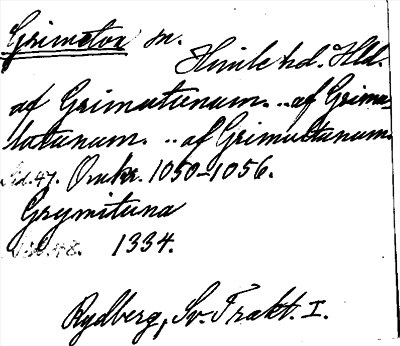 Grimeton sn.
Himle hd. Hld.
af Grimutunum. .. af Grimu-
tutunum. .. af Grimultunum.
Sid. 47. Omkr. 1050-1056.
Grymituna
1334.
Rydberg, Sv. Trakt. I.